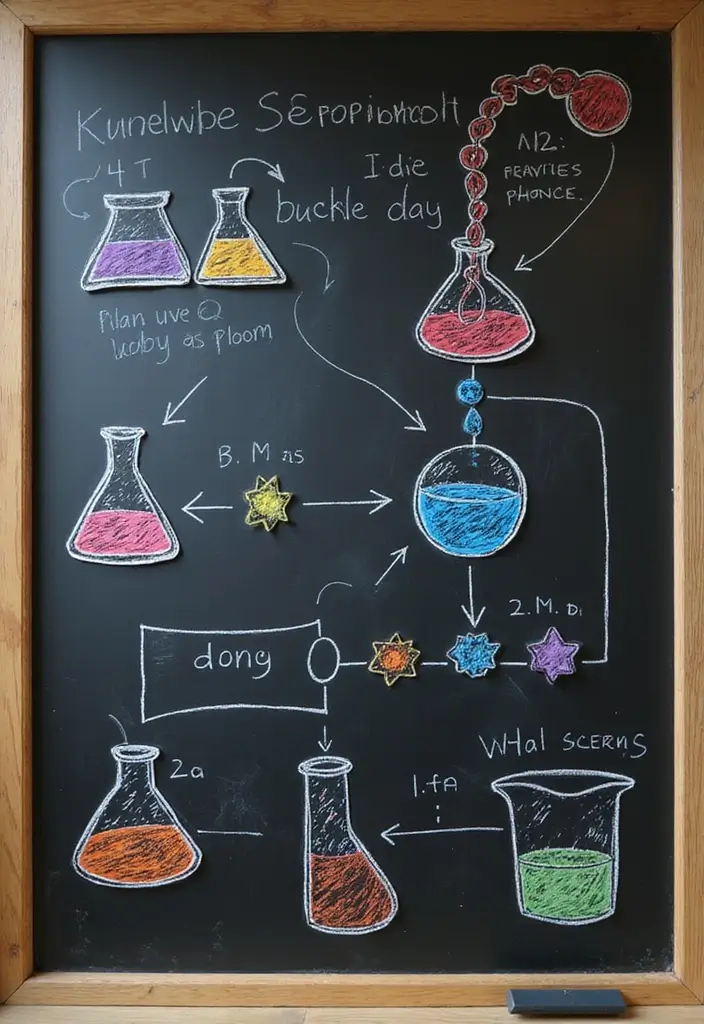 Kunelwbe Sepopibntcolt
4 T
I.die
buckle day
N2:
PEAVTIES
PHONCE.
Pilan uve Q
Waby as Ploom
B. M as
2. M. Di
dong
2a
1.fA
WHal SCERNS